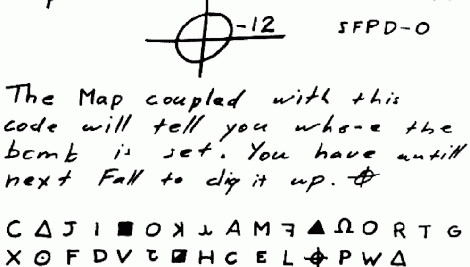 -12 SFPD-0
The Map coupled with this
code will tell you where the
bomb is set. You have untill
next Fall to dig it up. ⌖
C Δ J I ■ O ꓘ ⅄ A M ꟻ ▲ Ω O R T G
X ⊙ F D V ◪ H C E L ⌖ P W Δ